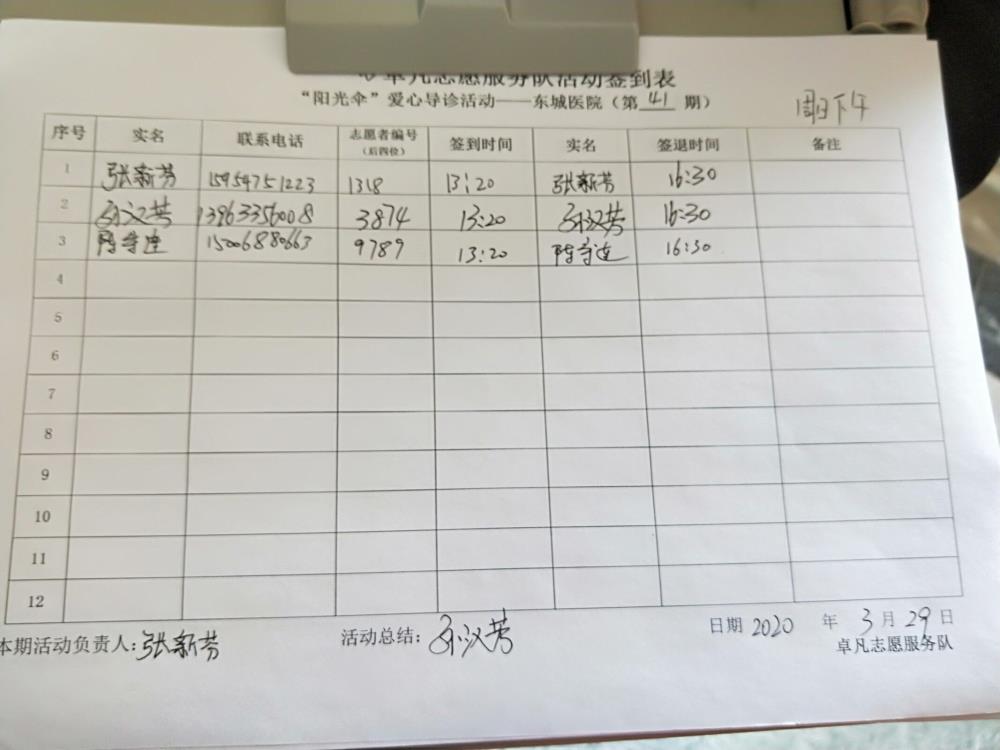 卓凡志愿服务队活动签到表
“阳光伞”爱心导诊活动——东城医院（第 41 期）
周日下午
序号 实名 联系电话 志愿者编号（后四位） 签到时间 实名 签退时间 备注
1 张新芳 15954751223 1318 13:20 张新芳 16:30
2 孙汉芳 13963356008 3874 13:20 孙汉芳 16:30
3 15006880663 9789 13:20 16:30
4
5
6
7
8
9
10
11
12
本期活动负责人：张新芳 活动总结：孙汉芳 日期 2020 年 3 月 29 日
卓凡志愿服务队